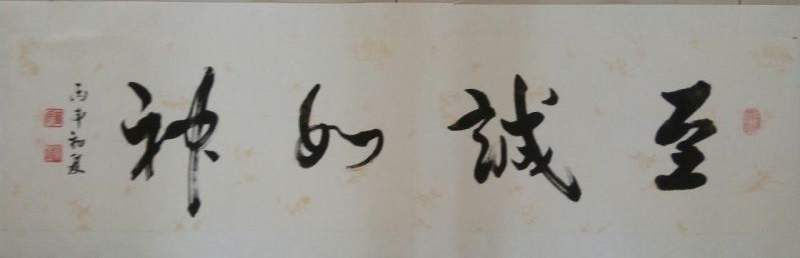 至誠如神
丙申初夏